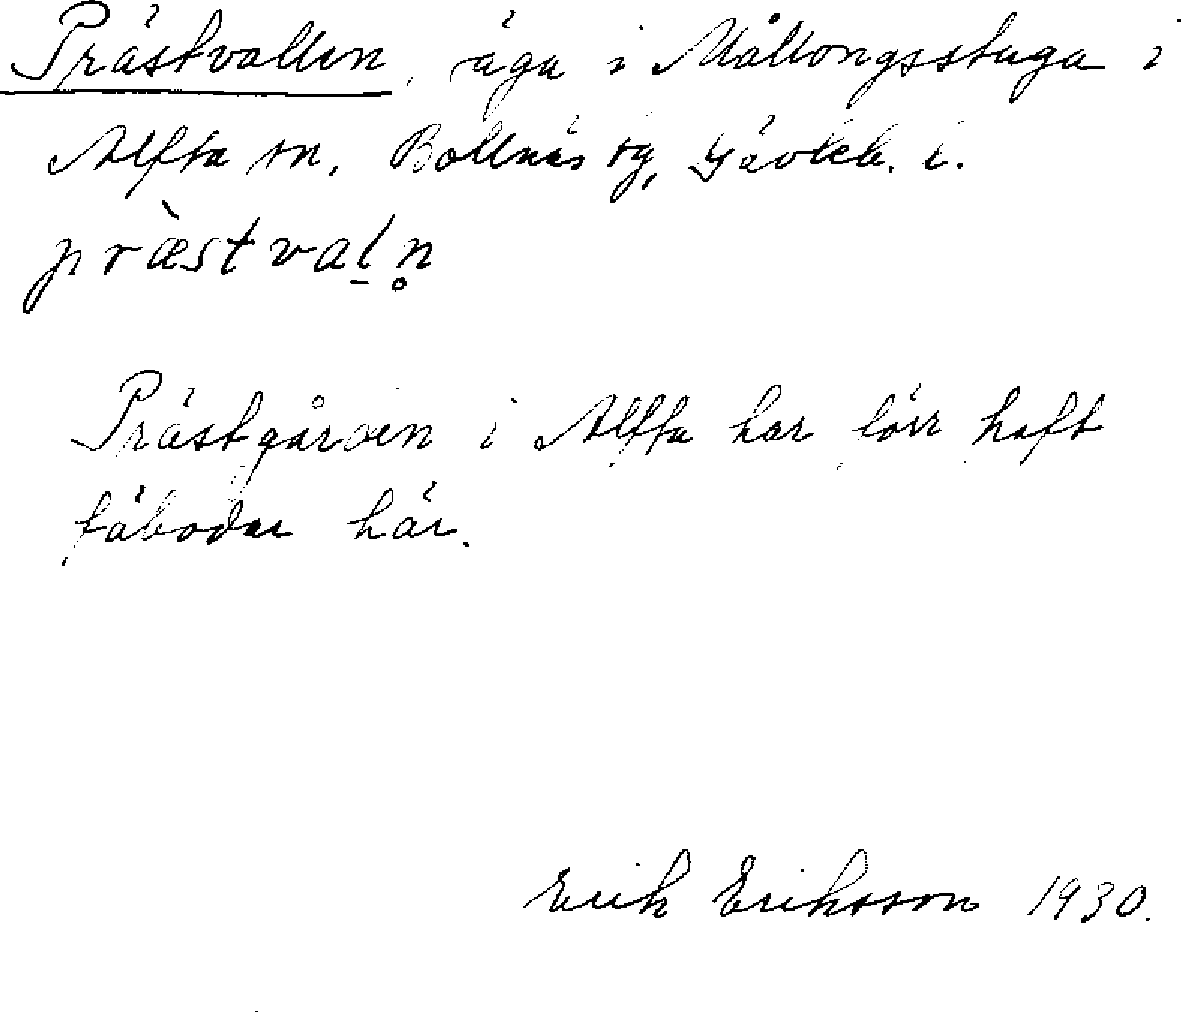 Prästvallen, äga i Mållongsstuga i
Alfta sn, Bollnäs tg, Gävleb. l.
præ̀stvaḻn̥
Prästgården i Alfta har förr haft
fäbodar här.
Erik Eriksson 1930.